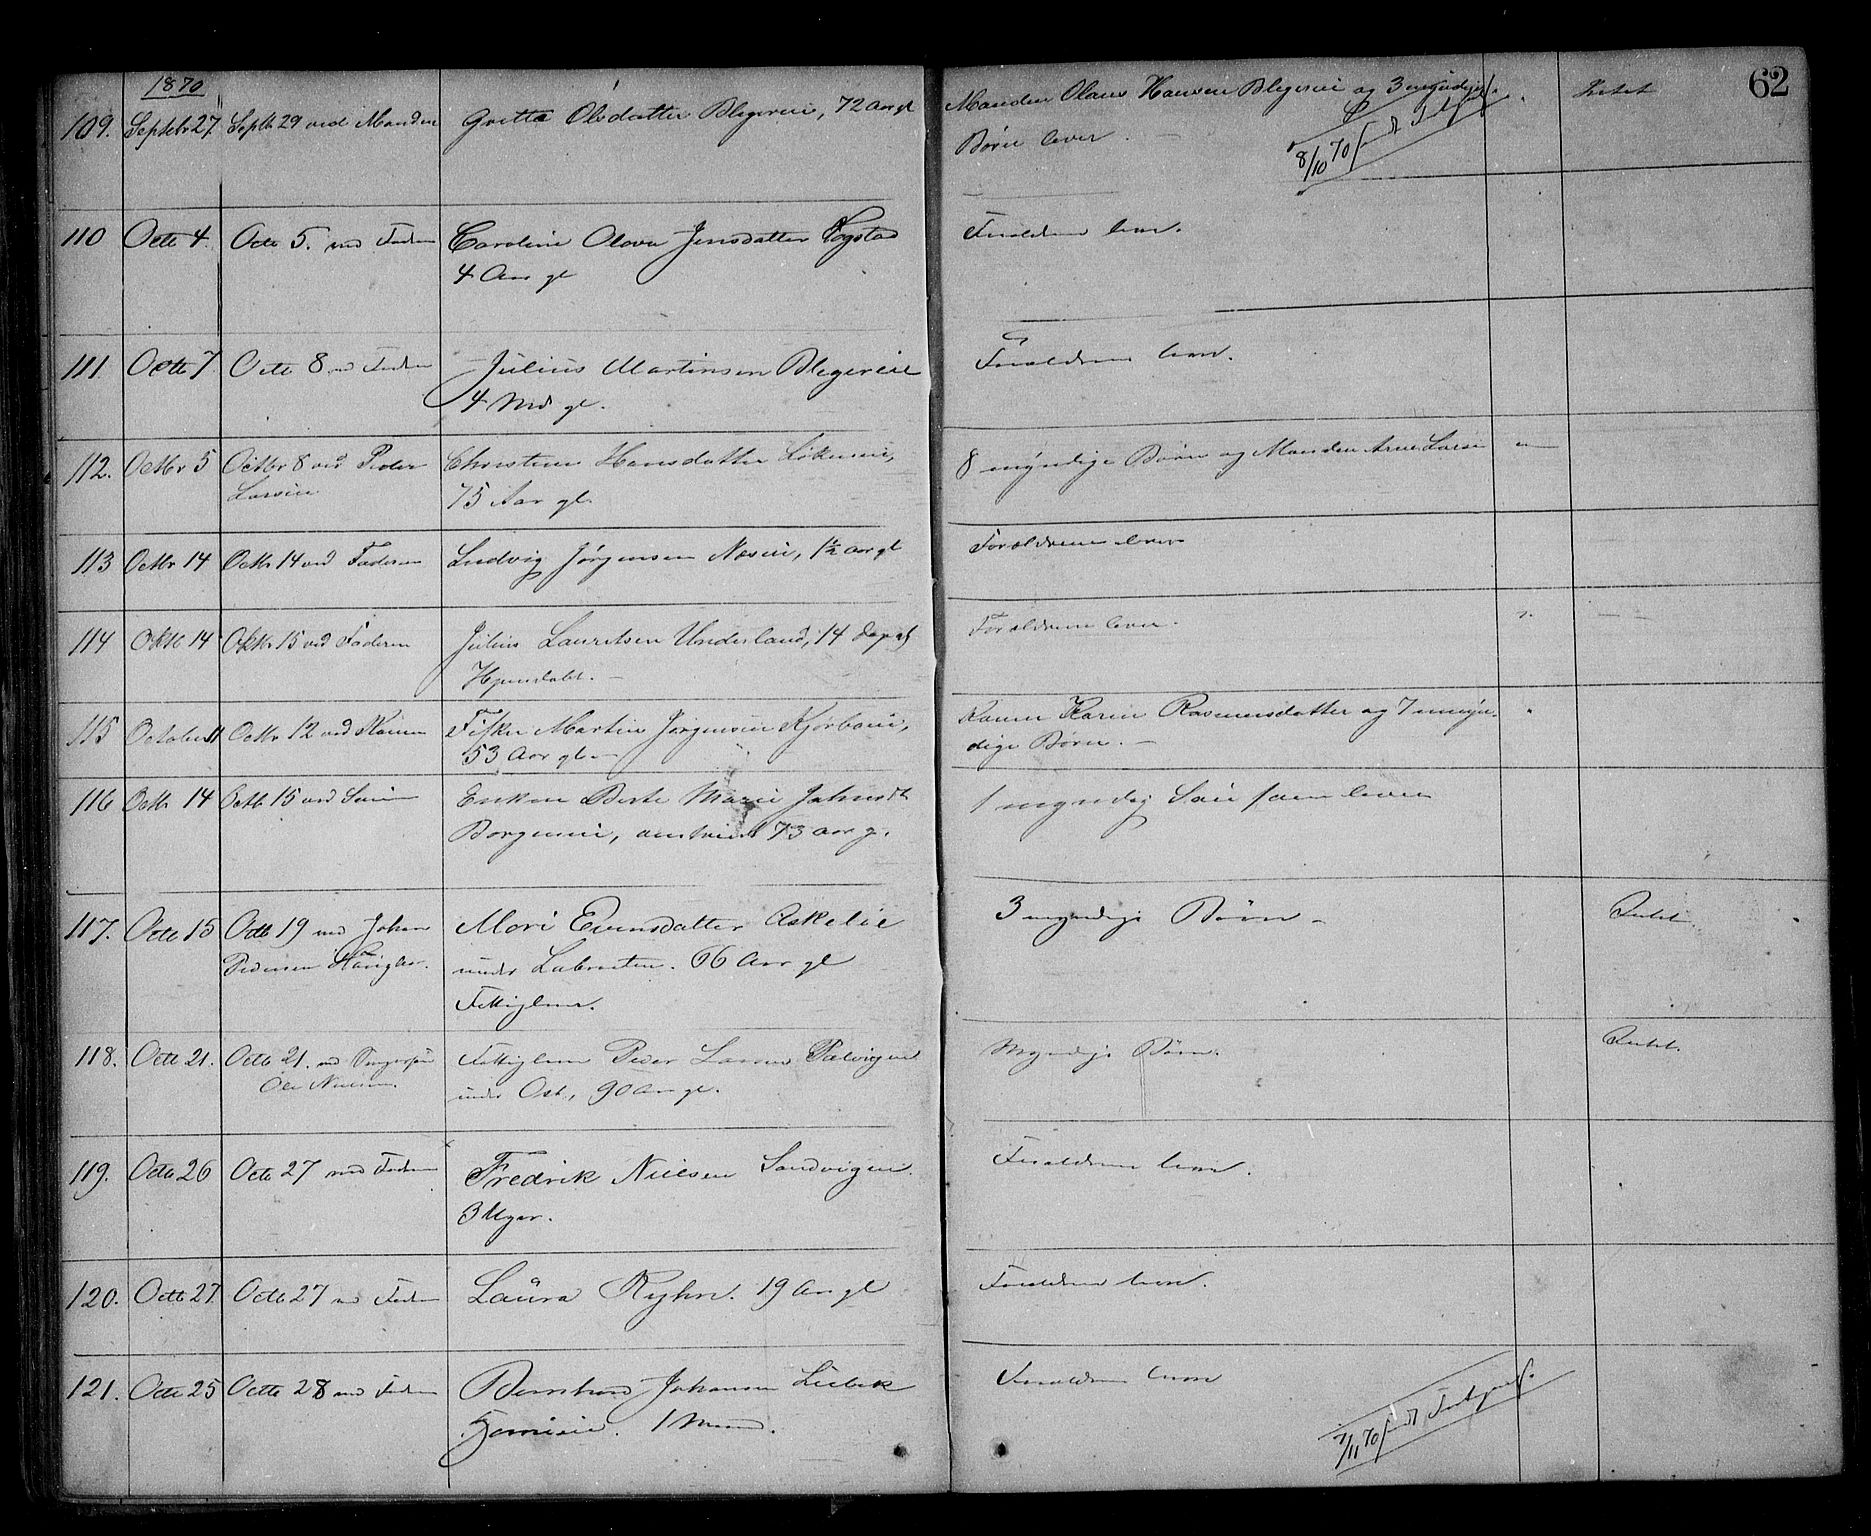 1870
62
109. Septbr 27. Septb 29 ved Manden Gretta Olsdatter Blegereie, 72 Aar gl Manden Olaus Hansen Blegereie og 3 myndige Intet
Børn lever.
8/10 70
110 Octb 4. Octb 5. ved Faderen Caroline Olava Jensdatter Vogstad Forældrene lever.
4 Aar gl
111 Octb 7 Octb 8 ved Faderen Julius Martinsen Blegereie Forældrene lever.
4 Md gl.
112. Octbr 5 Octbr 8 ved Peder Christine Hansdatter 8 myndige Børn og Manden Arne Larsen
Larsen 75 Aar gl.
113 Octbr 14 Octbr 14 ved Faderen Ludvig Jørgensen Næseie, 1½ aar gl Forældrene lever
114 Oktb 14 Oktbr 15 ved Faderen Julius Lauritsen Underland, 14 dage gl Forældrene lever.
115 October 11 Octbr 12 ved Konen Fisker Martin Jørgensen Kjorboeie, Konen Karen Rasmusdatter og 7 umyn-
53 Aar gl. dige Børn.
116 Octbr 14 Octb 15 ved Enken Berte Marie Johnsdt 1 myndig Søn som lever
73 aar g.
117. Octb 15 Octb 19 ved Johan Mari Evensdatter Askelie 3 myndige Børn Intet.
Pedersen under 66 Aar gl
Fattiglem.
118. Octb 21. Octb 21. ved Fattiglem Peder Larsen Myndige Børn. Intet.
Ole Nielsen. under Ost., 90 Aar gl.
119. Octb 26 Octb 27 ved Faderen Fredrik Nielsen Sandvigen Forældrene lever.
3 Uger.
120. Octb 27 Octb 27 ved Faderen Laura Ryhn. 19 Aar gl Forældrene lever.
121. Octb 25 Octb 28 ved Faderen Bernhard Johansen Forældrene lever
1 Maaned.
7/11 70